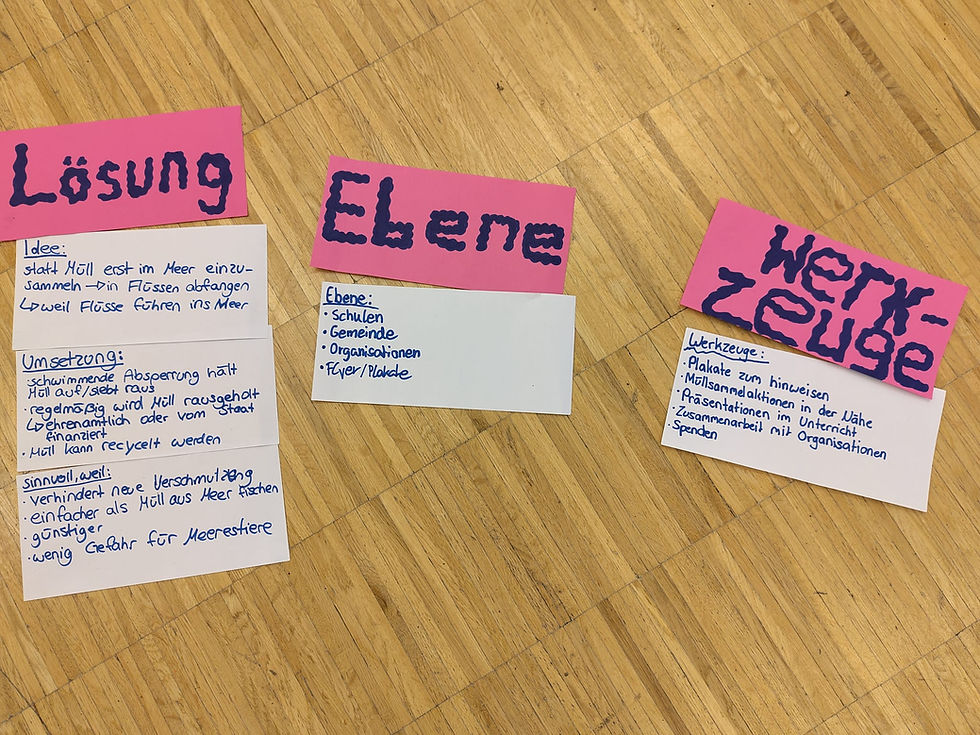 Lösung
Idee:
statt Müll erst im Meer einzu-
sammeln → in Flüssen abfangen
↳ weil Flüsse führen ins Meer
Umsetzung:
· schwimmende Absperrung hält
Müll auf/siebt raus
· regelmäßig wird Müll rausgeholt
↳ ehrenamtlich oder vom Staat
finanziert
· Müll kann recycelt werden
sinnvoll, weil:
· verhindert neue Verschmutzung
· einfacher als Müll aus Meer fischen
· günstiger
· wenig Gefahr für Meerestiere
Ebene
Ebene:
· Schulen
· Gemeinde
· Organisationen
· Flyer/Plakate
Werk-
zeuge
Werkzeuge:
· Plakate zum hinweisen
· Müllsammelaktionen in der Nähe
· Präsentationen im Unterricht
· Zusammenarbeit mit Organisationen
· Spenden